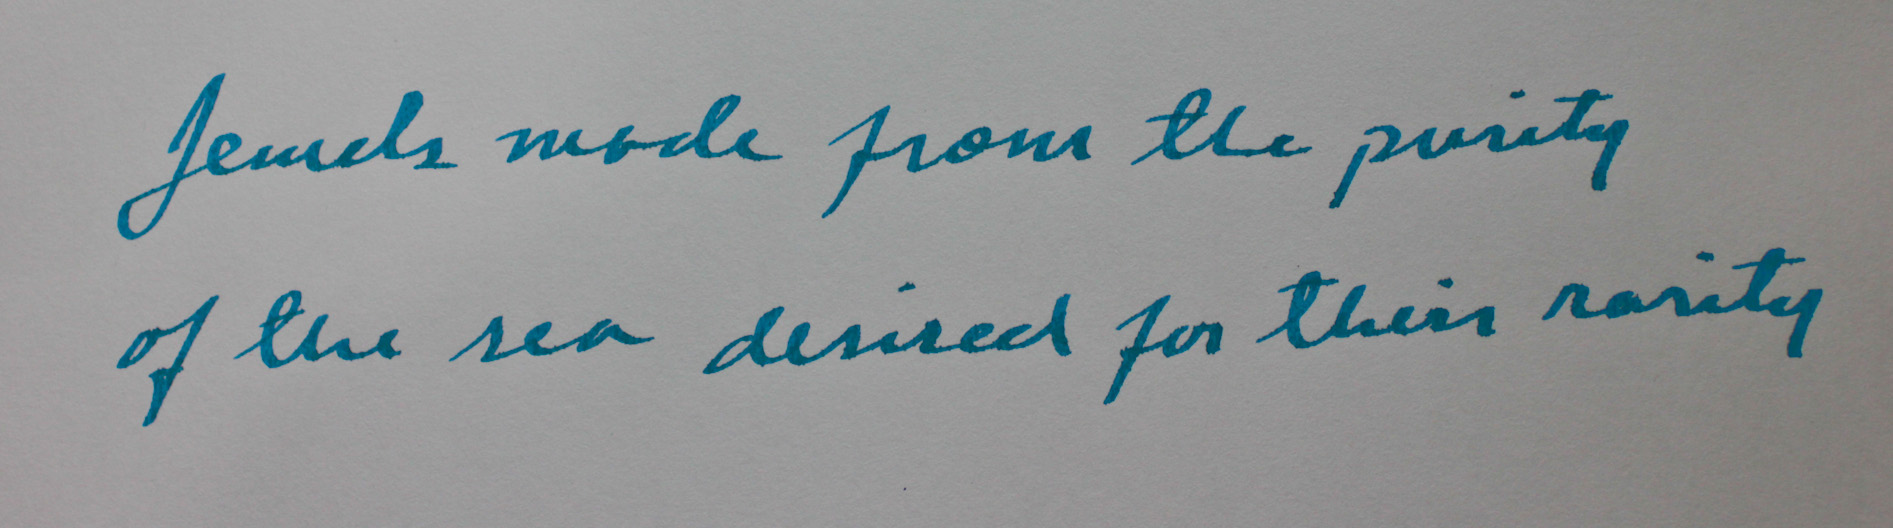 Jewels made from the purity
of the sea desired for their rarity